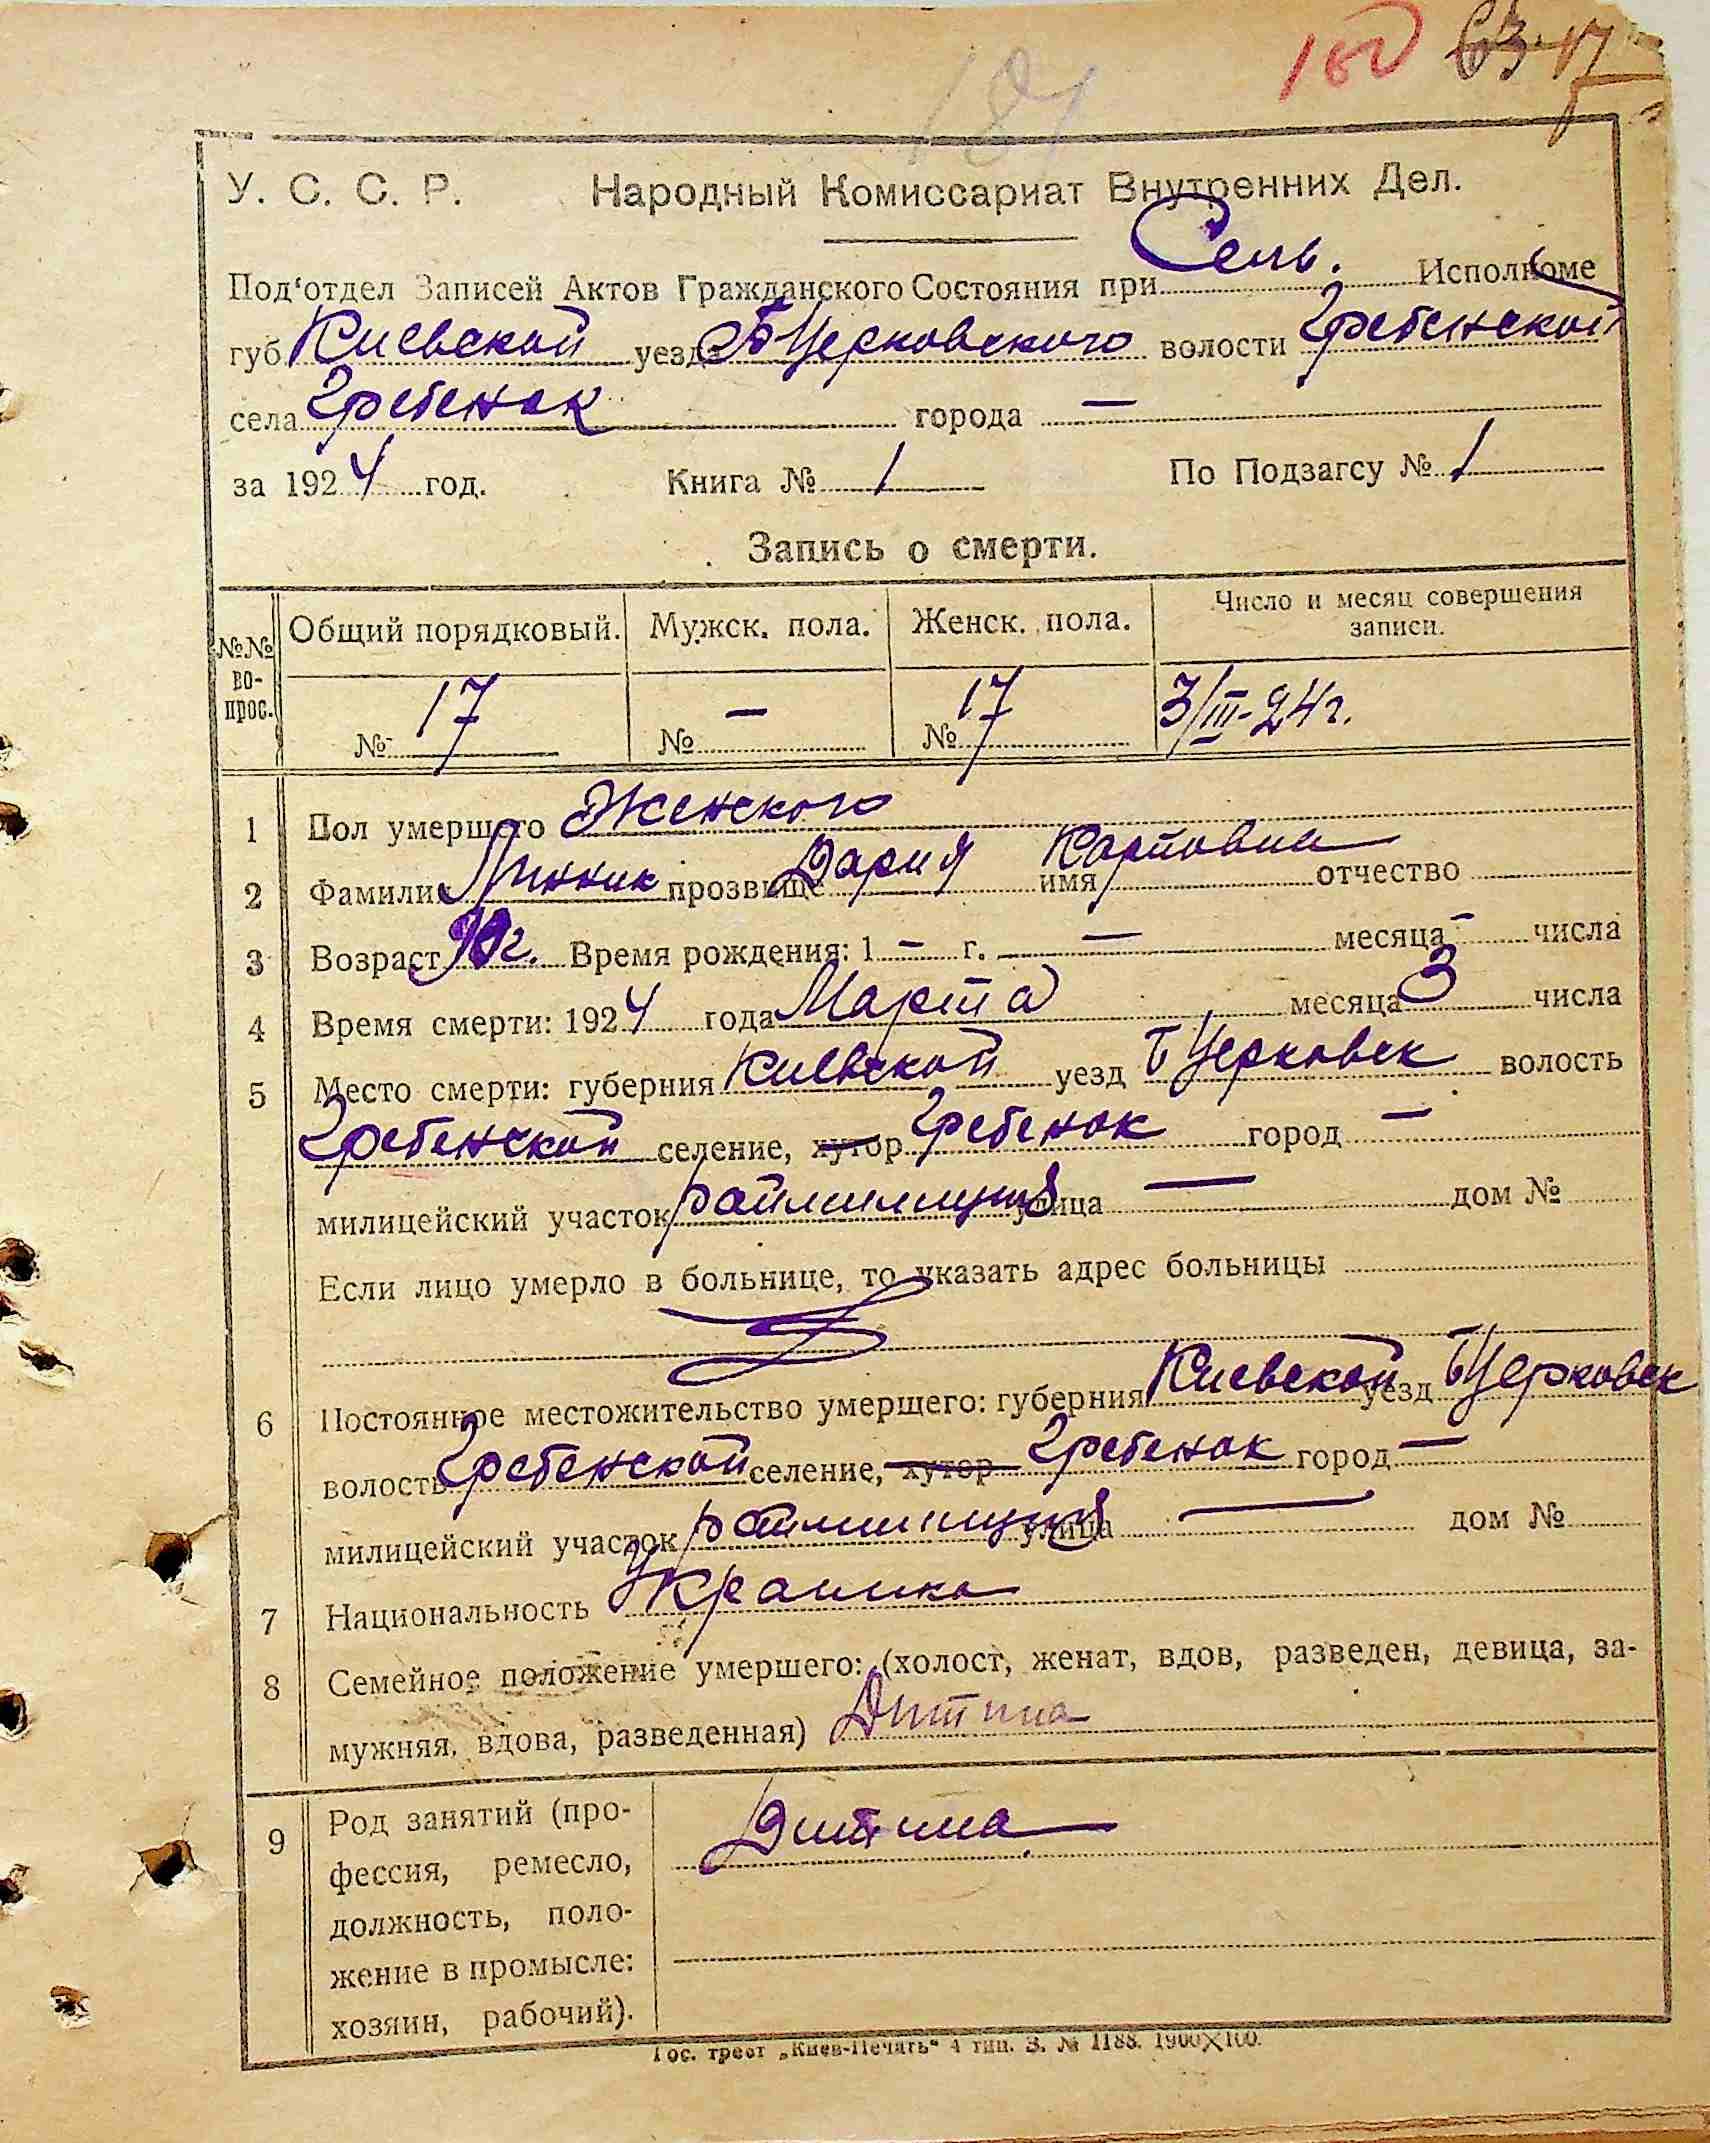 180 63 17
181
У. С. С. Р. Народный Комиссариат Внутренних Дел.
Под'отдел Записей Актов Гражданского Состояния при Сель. Исполкоме
губ. Киевской уезда БЦерковского волости Гребенской
села Гребенок города —
за 1924 год. Книга № 1 По Подзагсу № 1
Запись о смерти.
№№ во-прос. Общий порядковый. Мужск. пола. Женск. пола. Число и месяц совершения записи.
№ 17 № — № 17 3/III-24 г.
1 Пол умершего Женского
2 Фамилия Линник прозвище Дария имя Карповна отчество
3 Возраст г. Время рождения: 1 — г. — месяца — числа
4 Время смерти: 1924 года Марта месяца 3 числа
5 Место смерти: губерния Киевской уезд БЦерковск волость
Гребенской селение, хутор Гребенок город —
милицейский участок райминиции улица — дом №
Если лицо умерло в больнице, то указать адрес больницы
6 Постоянное местожительство умершего: губерния Киевской уезд БЦерковск
волость Гребенской селение, хутор Гребенок город —
милицейский участок улица — дом №
7 Национальность Украинка
8 Семейное положение умершего: (холост, женат, вдов, разведен, девица, за-
мужняя, вдова, разведенная) Дитина
9 Род занятий (про- Дитина
фессия, ремесло,
должность, поло-
жение в промысле:
хозяин, рабочий).
Гос. трест „Киев-Печать" 4 тип. З. № 1188. 1900×100.